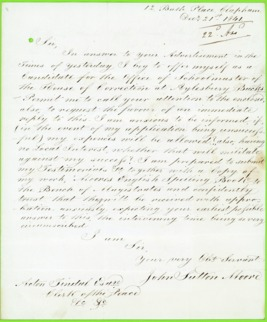 12 Bath Place Clapham
Decr 21st 1841
22 Dec
Sir,
In answer to your Advertisement in the
Times of yesterday I beg to offer myself as a
Candidate for the Office of Schoolmaster of
the House of Correction at Aylesbury Bucks
Permit me to call your attention to the enclosed
also, to request the favor of an immediate
reply to this I am anxious to be informed, if
(in the event of my application being unsuccess-
ful) my expenses will be allowed; also, having
no Local Interest, whether that will militate
against my success? I am prepared to submit
my Testimonials &c together with a Copy of
my work, Moores English Spelling Book to
the Bench of Magistrates and confidently
trust that they will be received with appro-
bation anxiously expecting your earliest possible
answer to this the intervening time being so very
circumscribed.
I am
Sir,
Your very Obt Servant
John Sutton Moore
Acton Tindal Esqre
Clerk of the Peace
&c &c